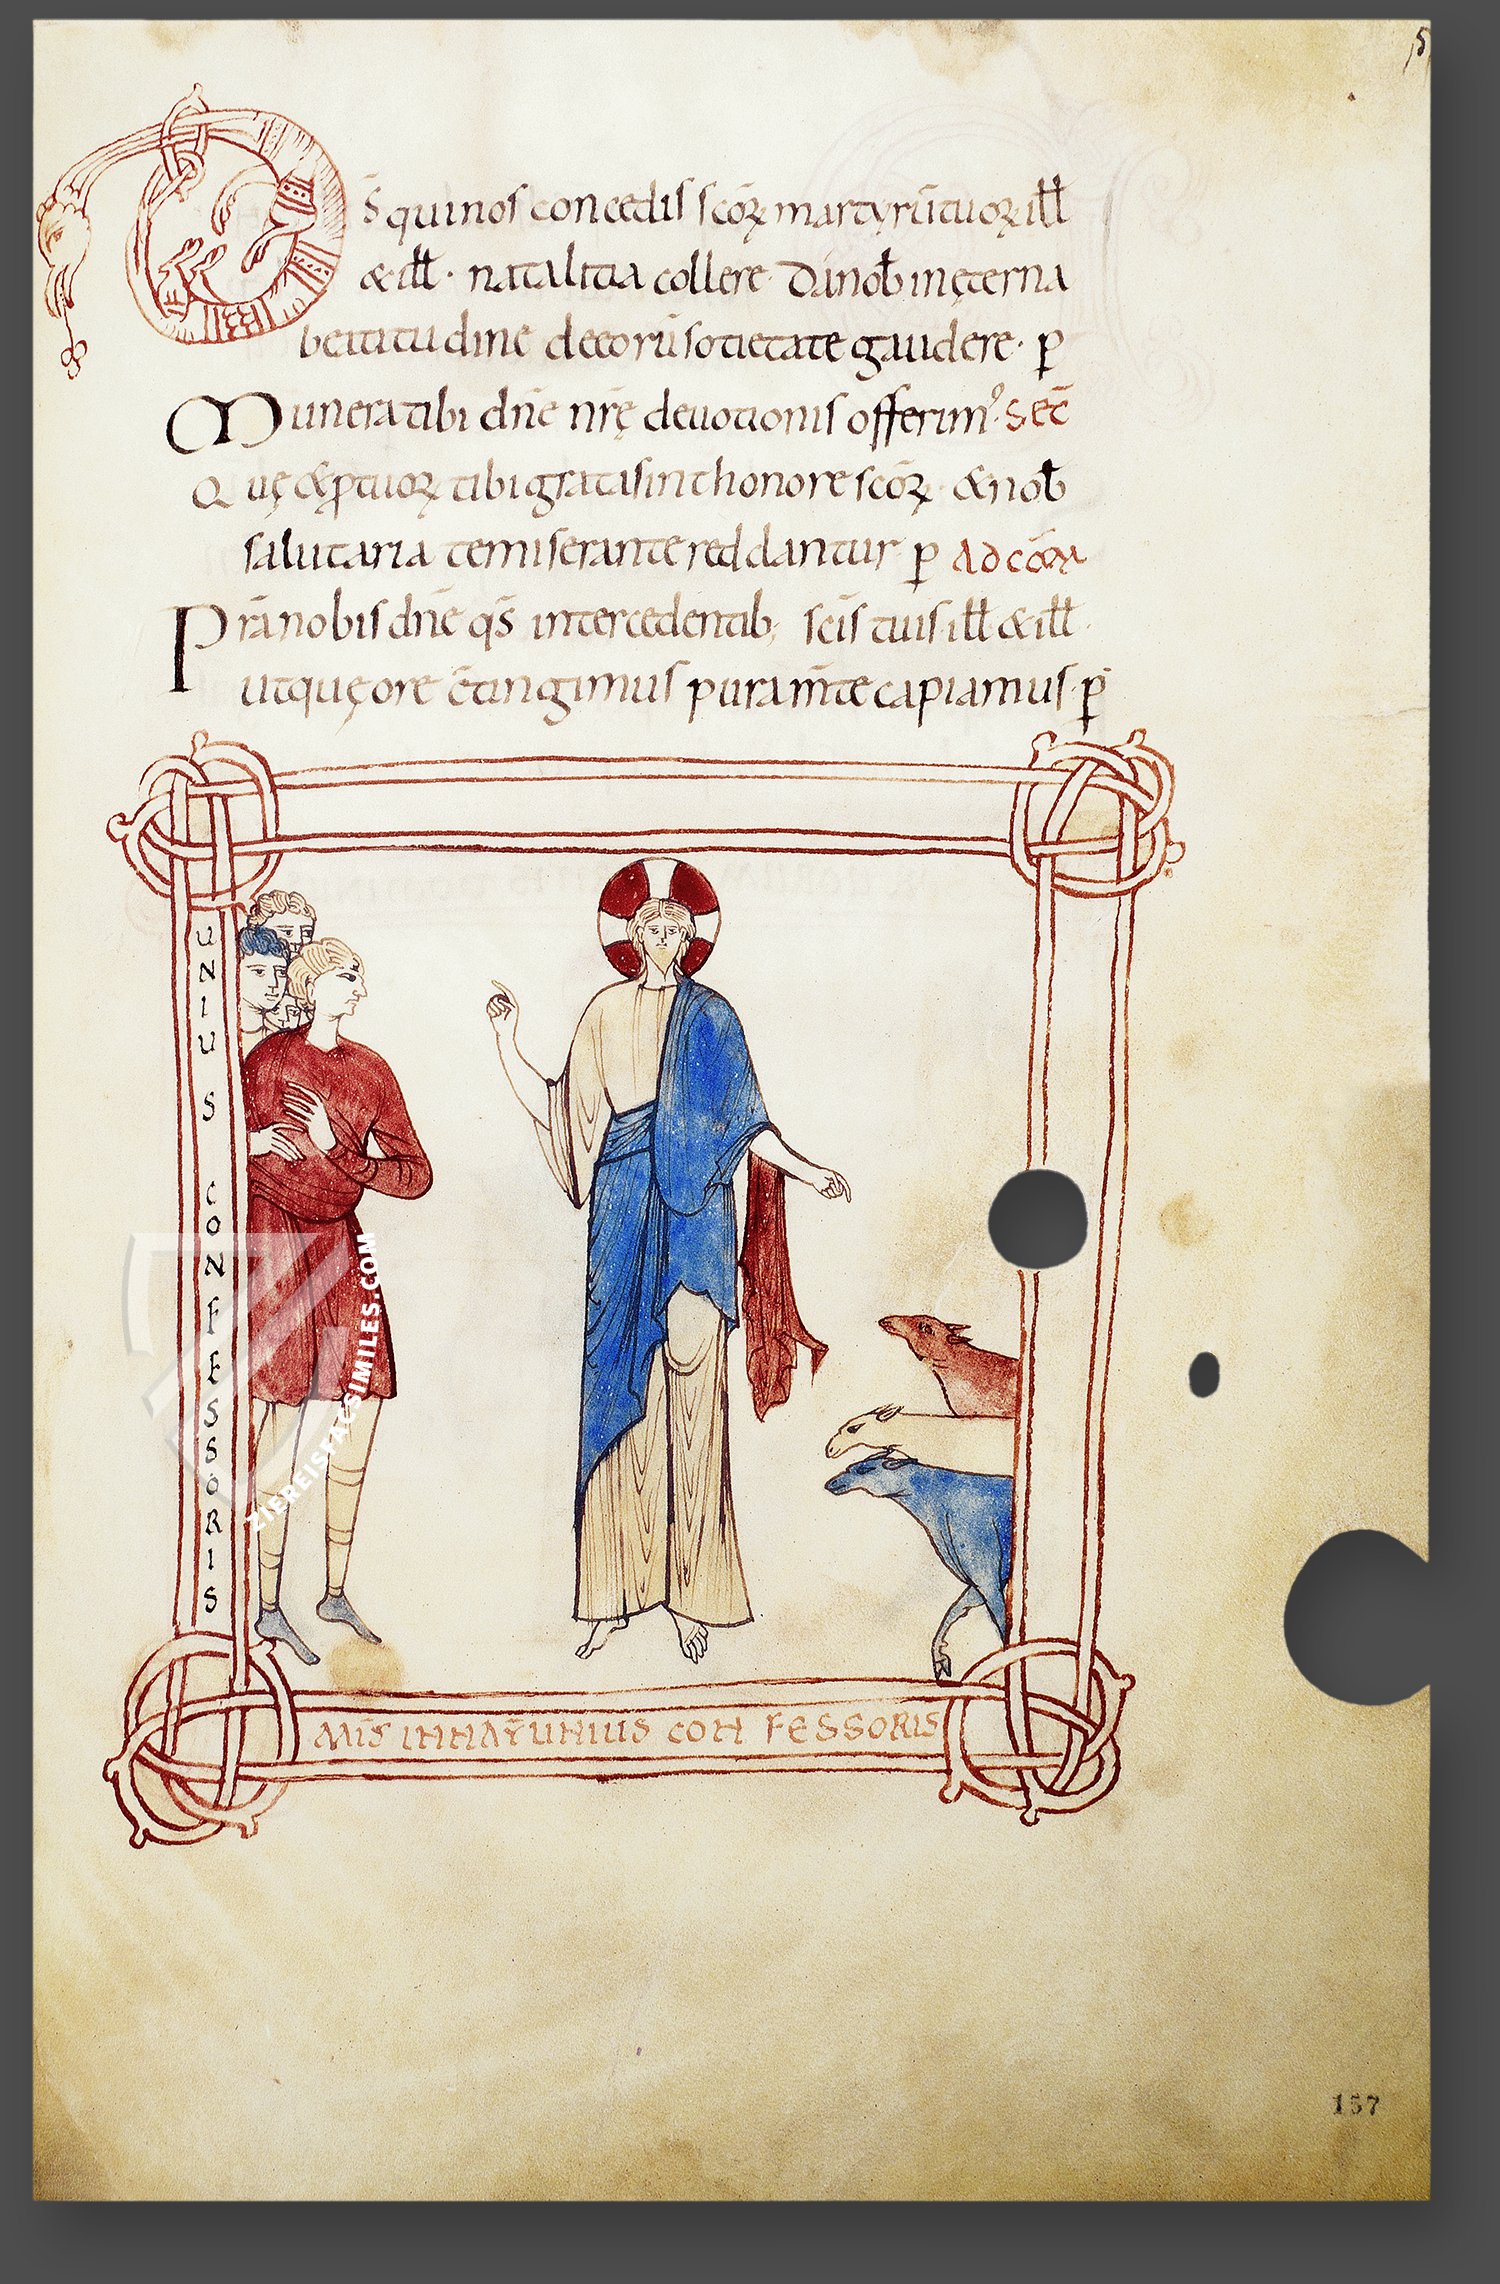 5
D̄s quinos concedis scōꝝ martyrū tuoꝝ ill̄
& ill̄ · natalitia collere · Da nob̄ in ęterna
beititudine deeorū sotietate gaudere · ꝑ
Munera tibi dn̄e nr̄ę deuotionis offerim⁹ · Sec̄
Quę & ꝓ tuoꝝ tibi grata sint honore scōꝝ · & nob̄
salutaria te miserante reddantur · ꝑ Ad cōm
Pr̄a nobis dn̄e qs̄ intercedentib; scīs tuis ill̄ & ill̄ ·
ut quę ore c̄tingimus pura m̄te capiamus · ꝑ
UNIUS CONFESSORIS
MIS̄ IN NAT̄ UNIUS CONFESSORIS
ZIEREISFACSIMILES.COM
157